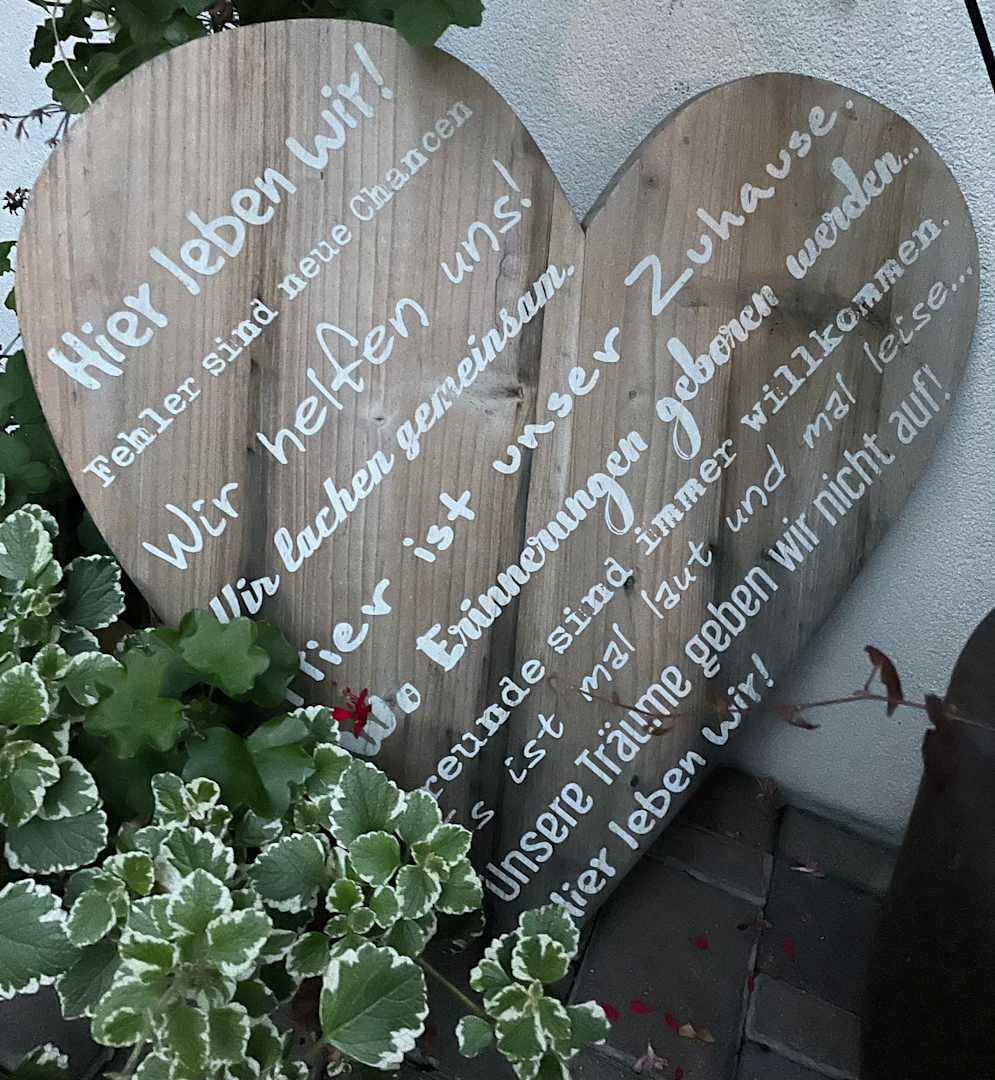 Hier leben wir!
Fehler sind neue Chancen
Wir helfen uns!
Wir lachen gemeinsam.
Hier ist unser Zuhause.
Wo Erinnerungen geboren werden...
Freunde sind immer willkommen.
Es ist mal laut und mal leise...
Unsere Träume geben wir nicht auf!
Hier leben wir!